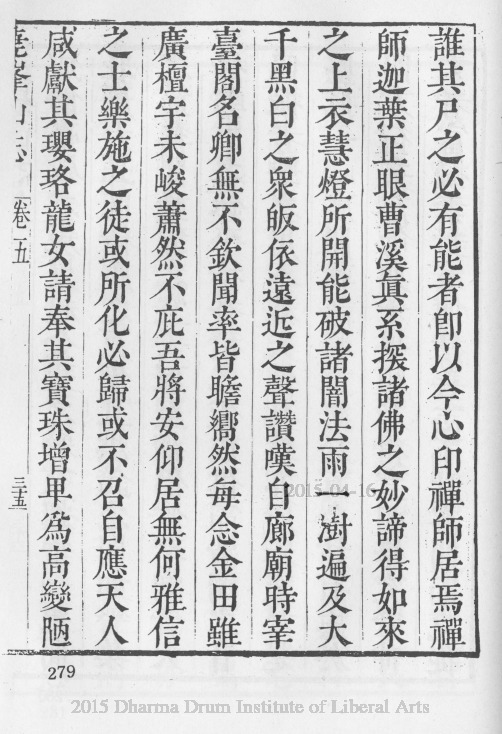 誰其尸之必有能者卽以今心印禪師居焉禪
師迦葉正眼曹溪眞系探諸佛之妙諦得如來
之上衣慧燈所開能破諸闇法雨一澍遍及大
千黑白之衆皈依遠近之聲讚嘆自廊廟時宰
臺閣名卿無不欽聞率皆瞻嚮然每念金田雖
廣檀宇未峻蕭然不庇吾將安仰居無何雅信
之士樂施之徒或所化必歸或不召自應天人
咸獻其瓔珞龍女請奉其寶珠增卑爲高變陋
堯峯山志 卷五 三十五
279
2015-04-16
2015 Dharma Drum Institute of Liberal Arts